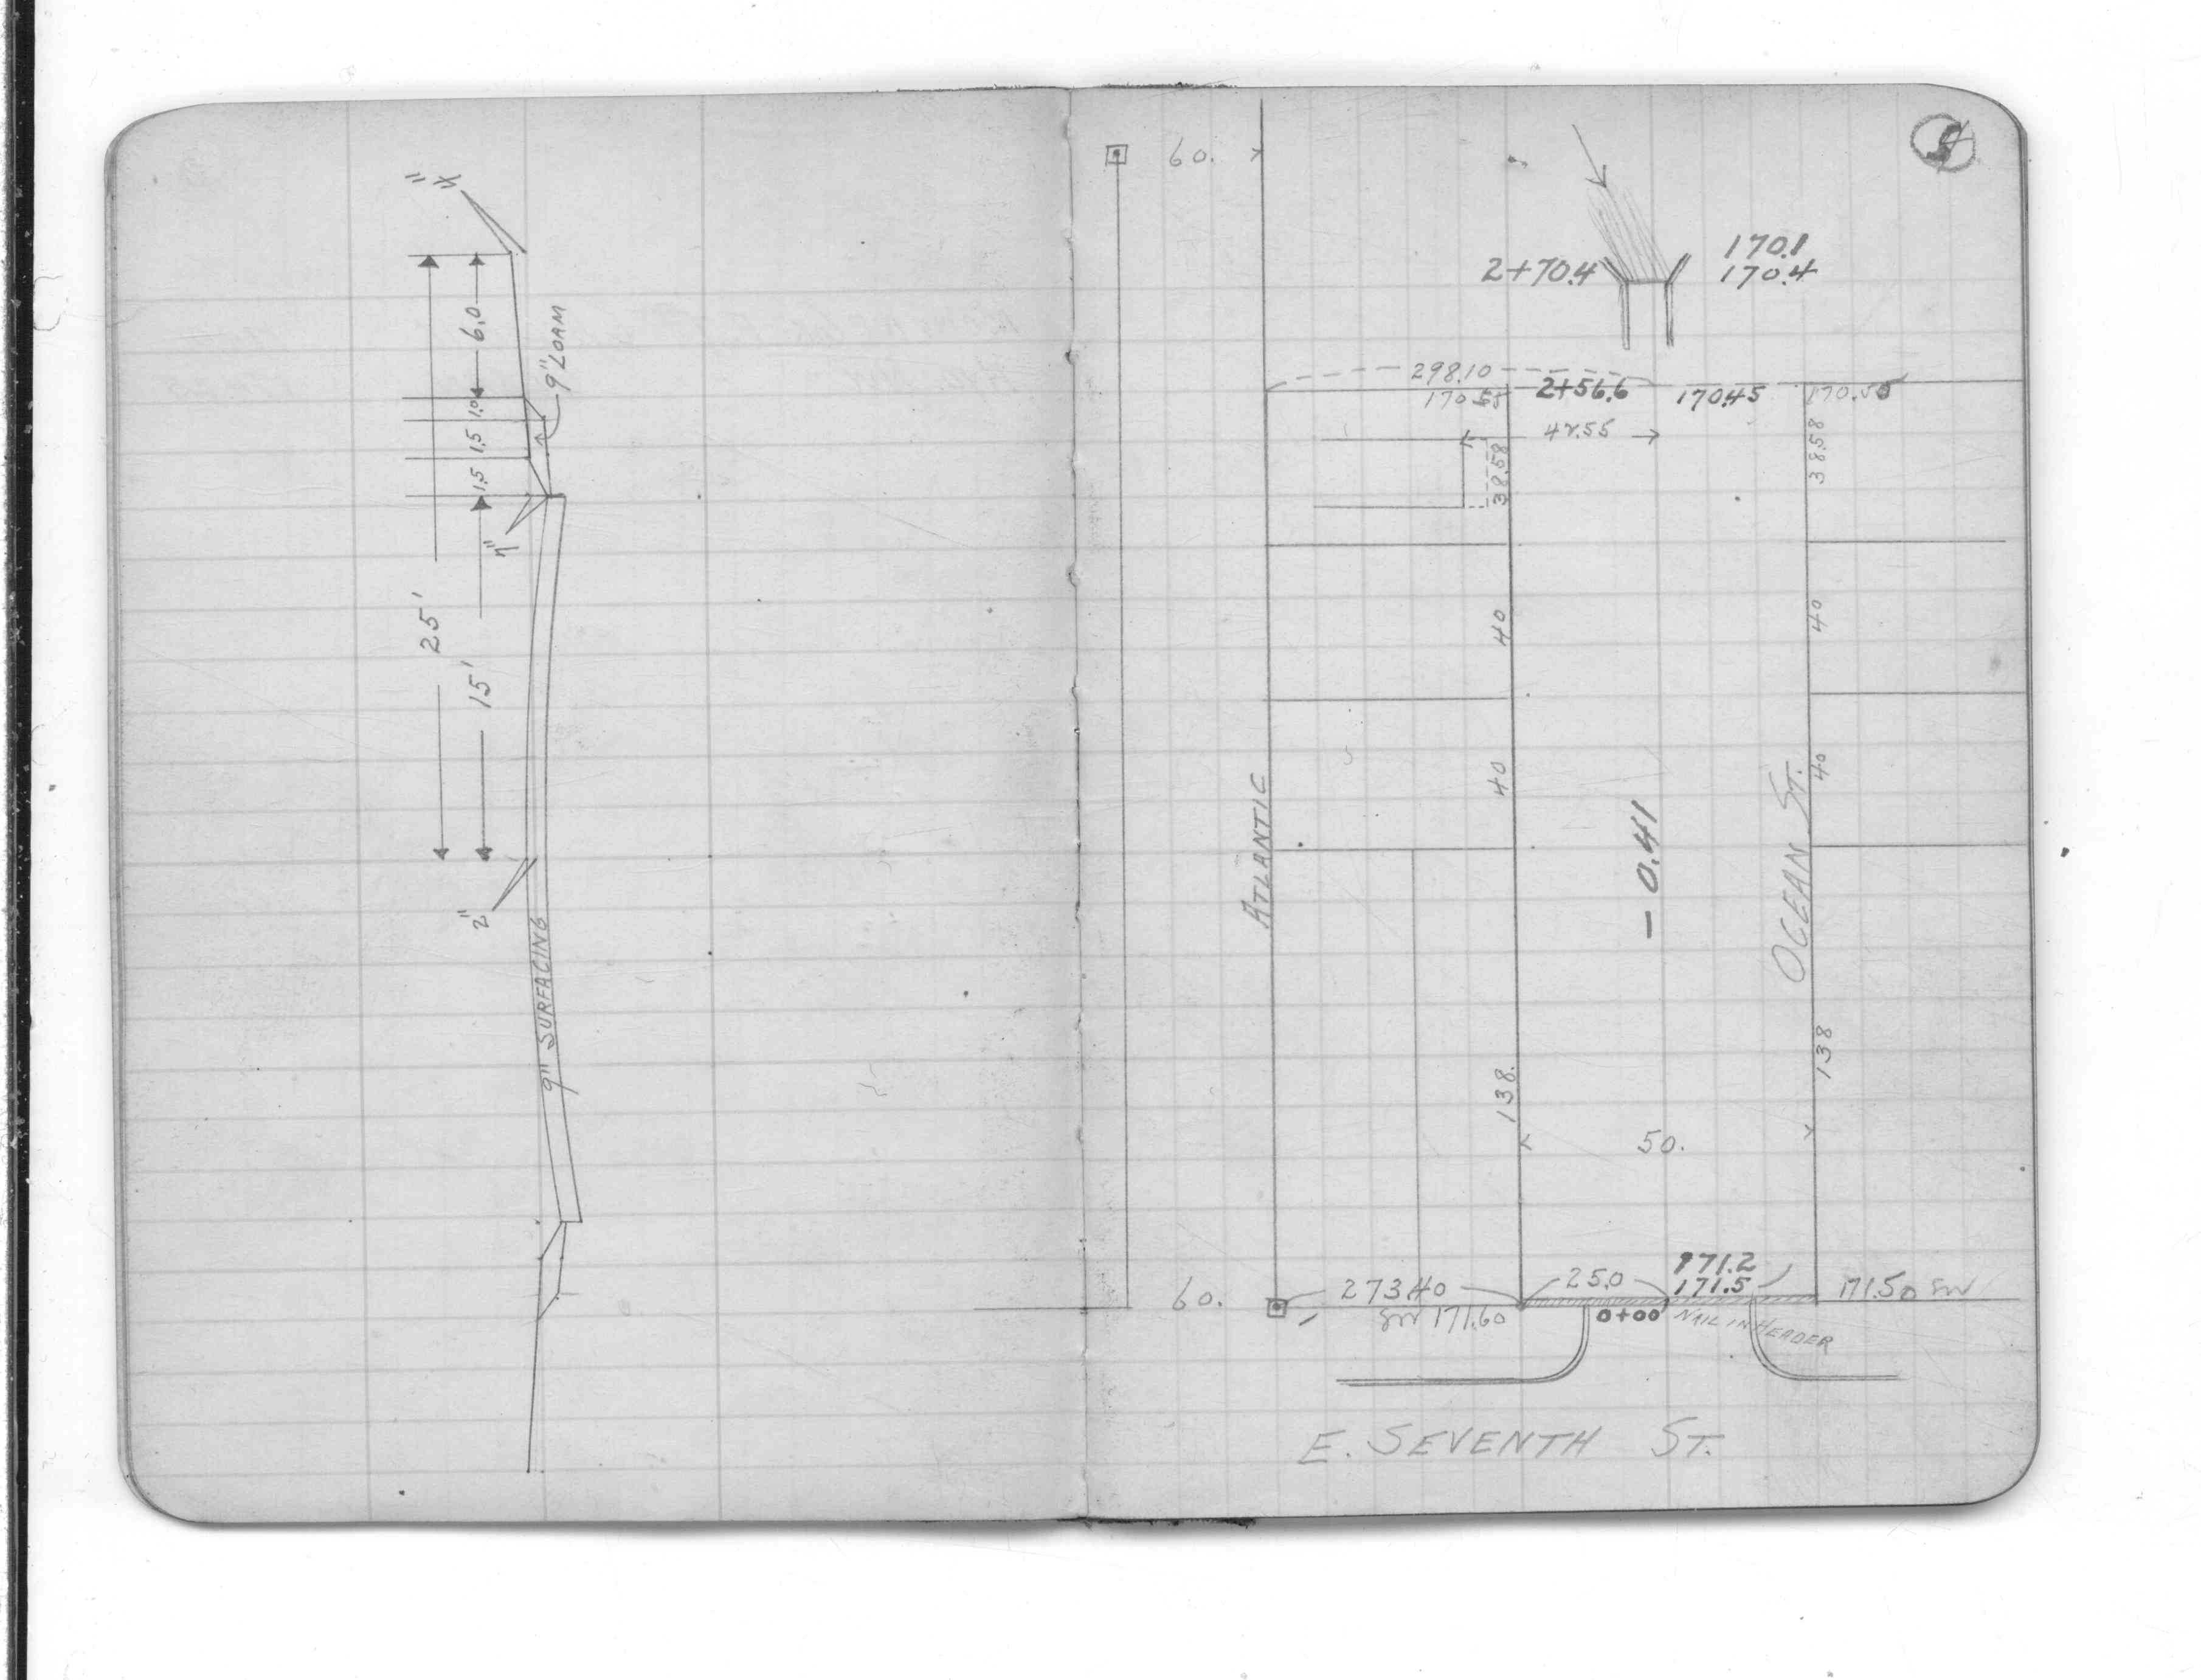 6.0
9" LOAM
1.0
1.5
1.5
25'
15'
2"
9" SURFACING
60.
170.1
2+70.4
170.4
298.10
2+56.6
170.45
38.58
38.58
40
40
40
40
ATLANTIC
- 0.41
OCEAN ST.
138.
138
50.
171.2
60.
273.40
25.0
171.5
171.50 SW
SW 171.60
0+00
NAIL IN HEADER
E. SEVENTH ST.